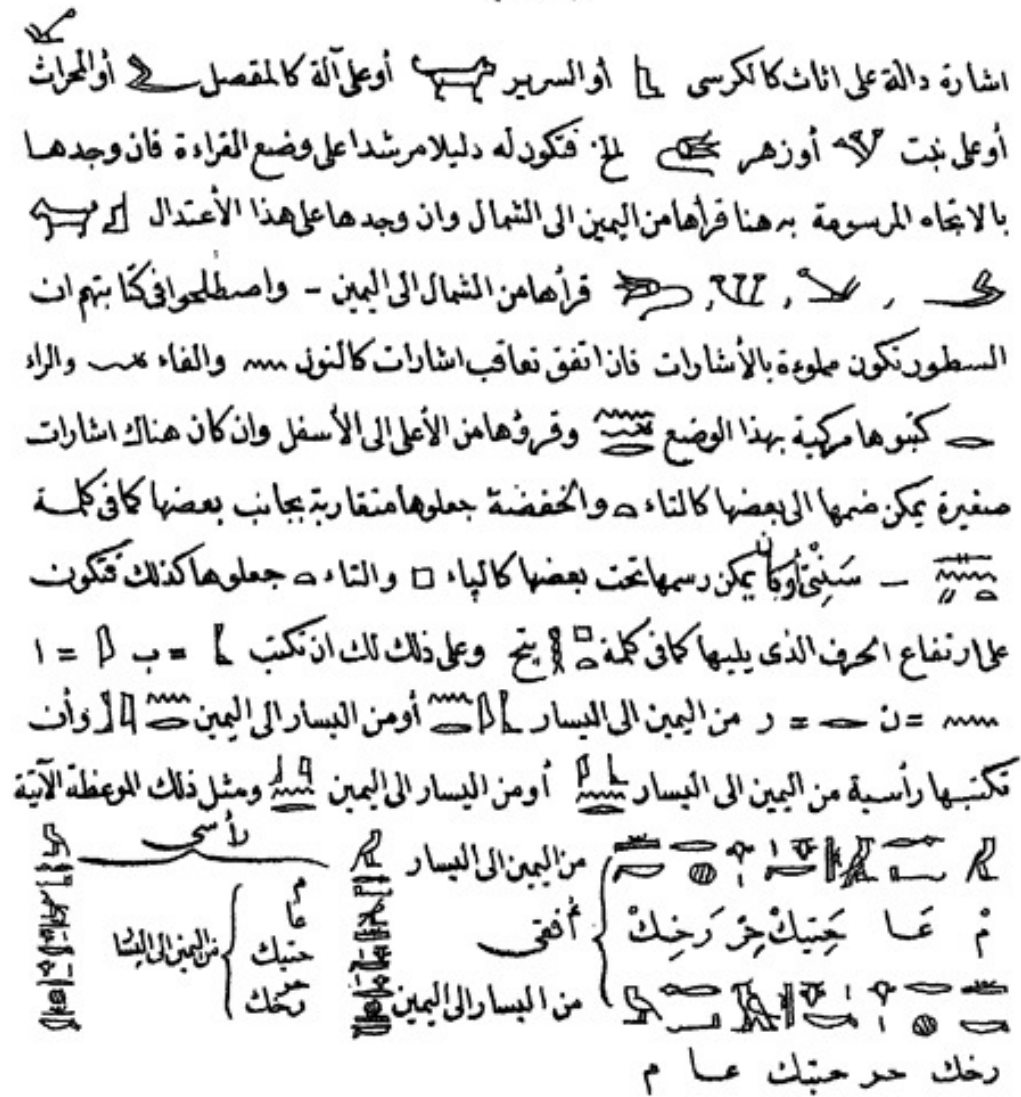 اشارة دالة على اثاث كالكرسى أو السرير أو على آلة كالمقصل أو المحراث
أو على نبت أو زهر الخ فتكون له دليلا مرشدا على وضع القراءة فان وجدها
بالاتجاه المرسومة به هنا قرأها من اليمين الى الشمال وان وجدها على هذا الأعتدال
, , , قرأها من الشمال الى اليمين – واصطلحوا فى كتابتهم ان
السطور تكون مملوءة بالأشارات فاذا اتفق تعاقب اشارات كالنون والفاء والراء
كتبوها مركبة بهذا الوضع وقرؤها من الأعلى الى الأسفل وان كان هناك اشارات
صغيرة يمكن ضمها الى بعضها كالتاء والخفضة جعلوها متقاربة بجانب بعضها كما فى كلمة
– سَنِتْى أو كان يمكن رسمها تحت بعضها كالپاء والتاء جعلوها كذلك فتكون
على ارتفاع الحرف الذى يليها كما فى كلمة پتح وعلى ذلك لك ان تكتب = ب = ا
= ن = ر من اليمين الى اليسار أو من اليسار الى اليمين وأن
تكتبها رأسية من اليمين الى اليسار أو من اليسار الى اليمين ومثل ذلك الموعظة الآتية
من اليمين الى اليسار
أفقى
مْ عَـا حَتِيكْ حِرْ رَخِكْ
من اليسار الى اليمين
رخك حر حتيك عا م
رأسى
م
عا
حتيك
حر
رخك
من اليمين الى اليسار